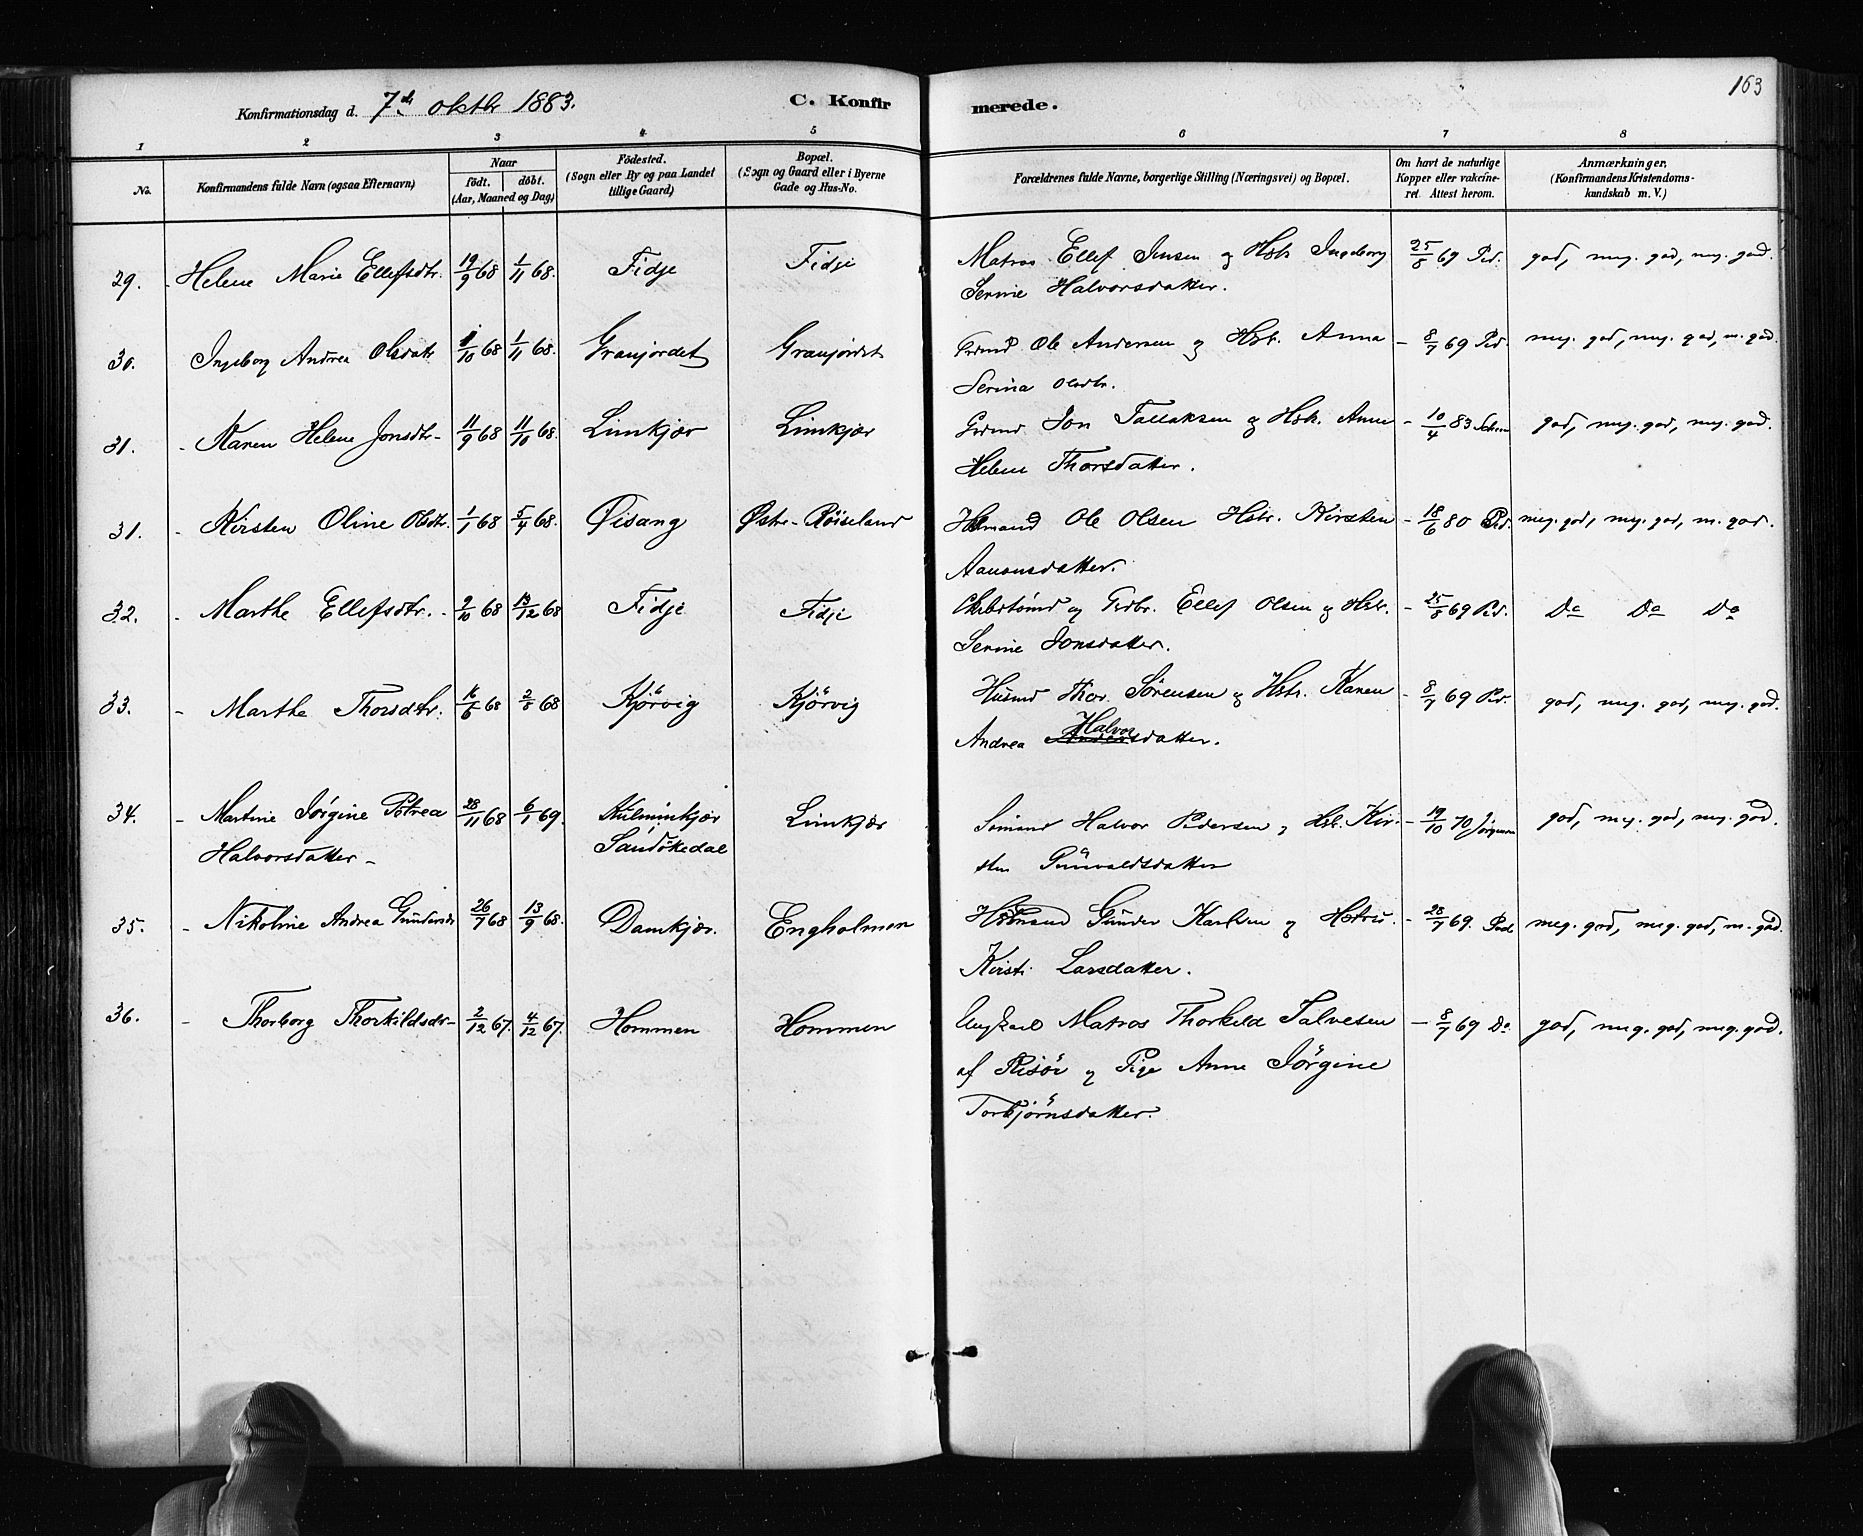 163
Konfirmationsdag d. 7de oktbr 1883. C. Konfirmerede.
1 2 3 4 5 6 7 8
No. Konfirmandens fulde Navn (ogsaa Efternavn) Naar födt. döbt. (Aar, Maaned og Dag) Födested. (Sogn eller By og paa Landet tillige Gaard) Bopæl. (Sogn og Gaard eller i Byerne Gade og Hus-No. Forældrenes fulde Navne, borgerlige Stilling (Næringsvei) og Bopæl. Om havt de naturlige Kopper eller vakcineret. Attest herom. Anmærkninger. (Konfirmandens Kristendomskundskab m. V.)
29. - Helene Marie Ellefsdtr. 19/9 68 1/11 68. Fidje Fidje Matros Ellef Jensen og Hstr Ingeborg 25/8 69 Ped. god, meg. god, meg. god.
Serine Halvorsdatter.
30. Ingeborg Andrea Olsdatr 1/10 68 1/11 68. Granjordet Granjordet Grdmd Ole Andersen og Hstr. Anna - 8/7 69 Ped. meg. god, meg. god, m. god.
Serina Olsdtr.
31. - Karen Helene Jonsdtr- 11/9 68 11/10 68. Limkjær Limkjær Grdmd Jon Tallaksen og Hstr. Anne - 10/4 83 god, meg. god, meg. god.
Helene Thorsdatter.
31. - Kirsten Oline Olsdtr. 1/1 68 5/4 68. Øisang Østr-Röiseland Husmand Ole Olsen Hstr. Kirsten - 18/6 80 Ped. meg. god, meg. god, m. god.
Aanonsdatter.
32. - Marthe Ellefsdtr. - 2/10 68 13/12 68 Fidje Fidje og Grdbr. Ellef Olsen og Hstr. - 25/8 69 Ped. Do Do Do
Serine Jonsdatter.
33. - Marthe Thorsdtr. 16/6 68 2/8 68 Kjörvig Kjörvig Husmd Thor Sörensen og Hstr. Karen - 8/7 69 Ped. god, meg. god, meg. god.
Andrea Halvorsdatter.
34. - Martine Jörgine Petrea 28/11 68 6/1 69. Limkjær Sömand Halvor Pedersen og Hstr. Kir- - 19/10 70 Jörgensen god, meg. god, meg. god.
Halvorsdatter - Sandökedal sten Gunvaldsdatter
35. - Nikoline Andrea Gundersdr 26/7 68 13/9 68. Damkjær. Engholmen Husmand Gunder Karlsen og Hstr. - 28/7 69. Ped. meg. god, meg. god, m. god.
Kirsti Larsdatter.
36. - Thorborg Thorkildsdr- 2/12 67. 4/12 67. Hommen Hommen Ungkarl Matros Thorkild Salvesen - 8/7 69 Do god, meg. god, meg. god.
af Risör og Pige Anne Jörgine
Torbjörnsdatter.